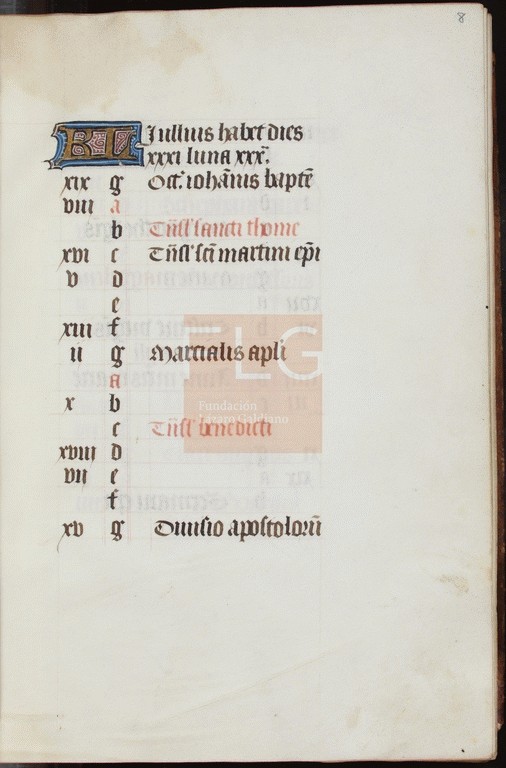 8
KL Iullius habet dies
xxxi luna xxx.
xix g Oct. iohānis baptē
viii a
b Trāsl' sancti thome
xvi c Trāsl' scī martini epī
v d
e
xiii f
ii g Marcialis apli
a
x b
c Trāsl' benedicti
xviii d
vii e
f
xv g Diuisio apostolorū
FLG
Fundación
Lázaro Galdiano